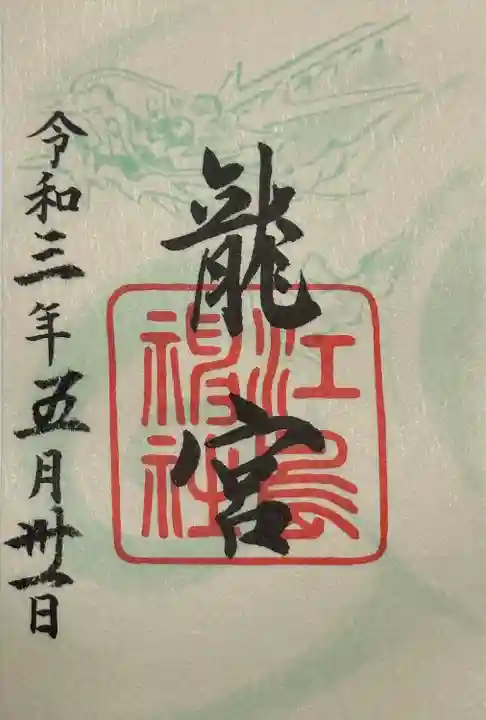 龍宮
江島神社
令和三年五月卅一日